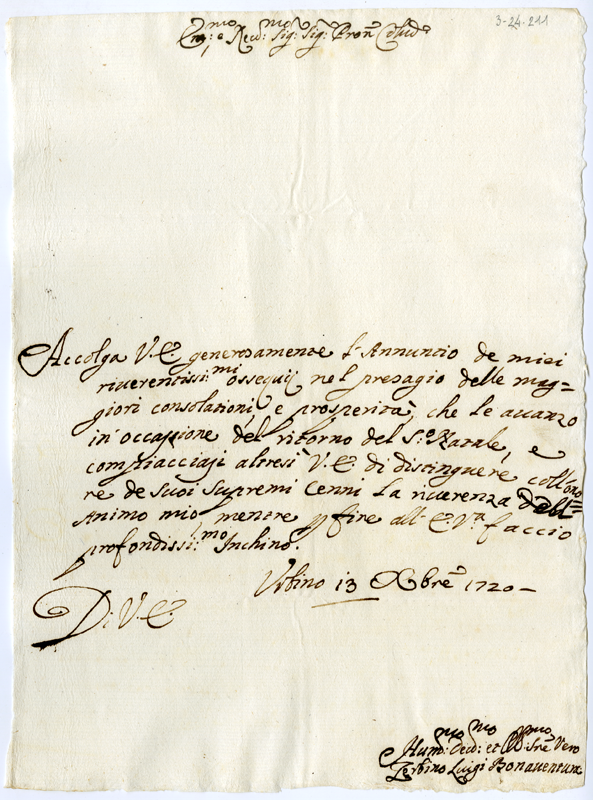 3-24-211
Em:mo e Rev:mo Sig:r Sig:r Pron Colmo
Accolga V.E. generosamente l'Annuncio de miei
riverentissi:mi ossequij nel presagio delle mag=
giori consolazioni, e prosperità, che le avanzo
in occasione del ritorno del S:o Natale, e
compiacciasi altresì V.E. di distinguere coll'ono
re de suoi supremi Cenni la riverenza dell=
Animo mio, mentre p fine all'E.V.a faccio
profondissi:mo Inchino.
Urbino 13 Xbre 1720-
Di V.E.
Hum:mo Dev:mo et Obb:mo Sre Vero
Zerbino Luigi Bonaventura